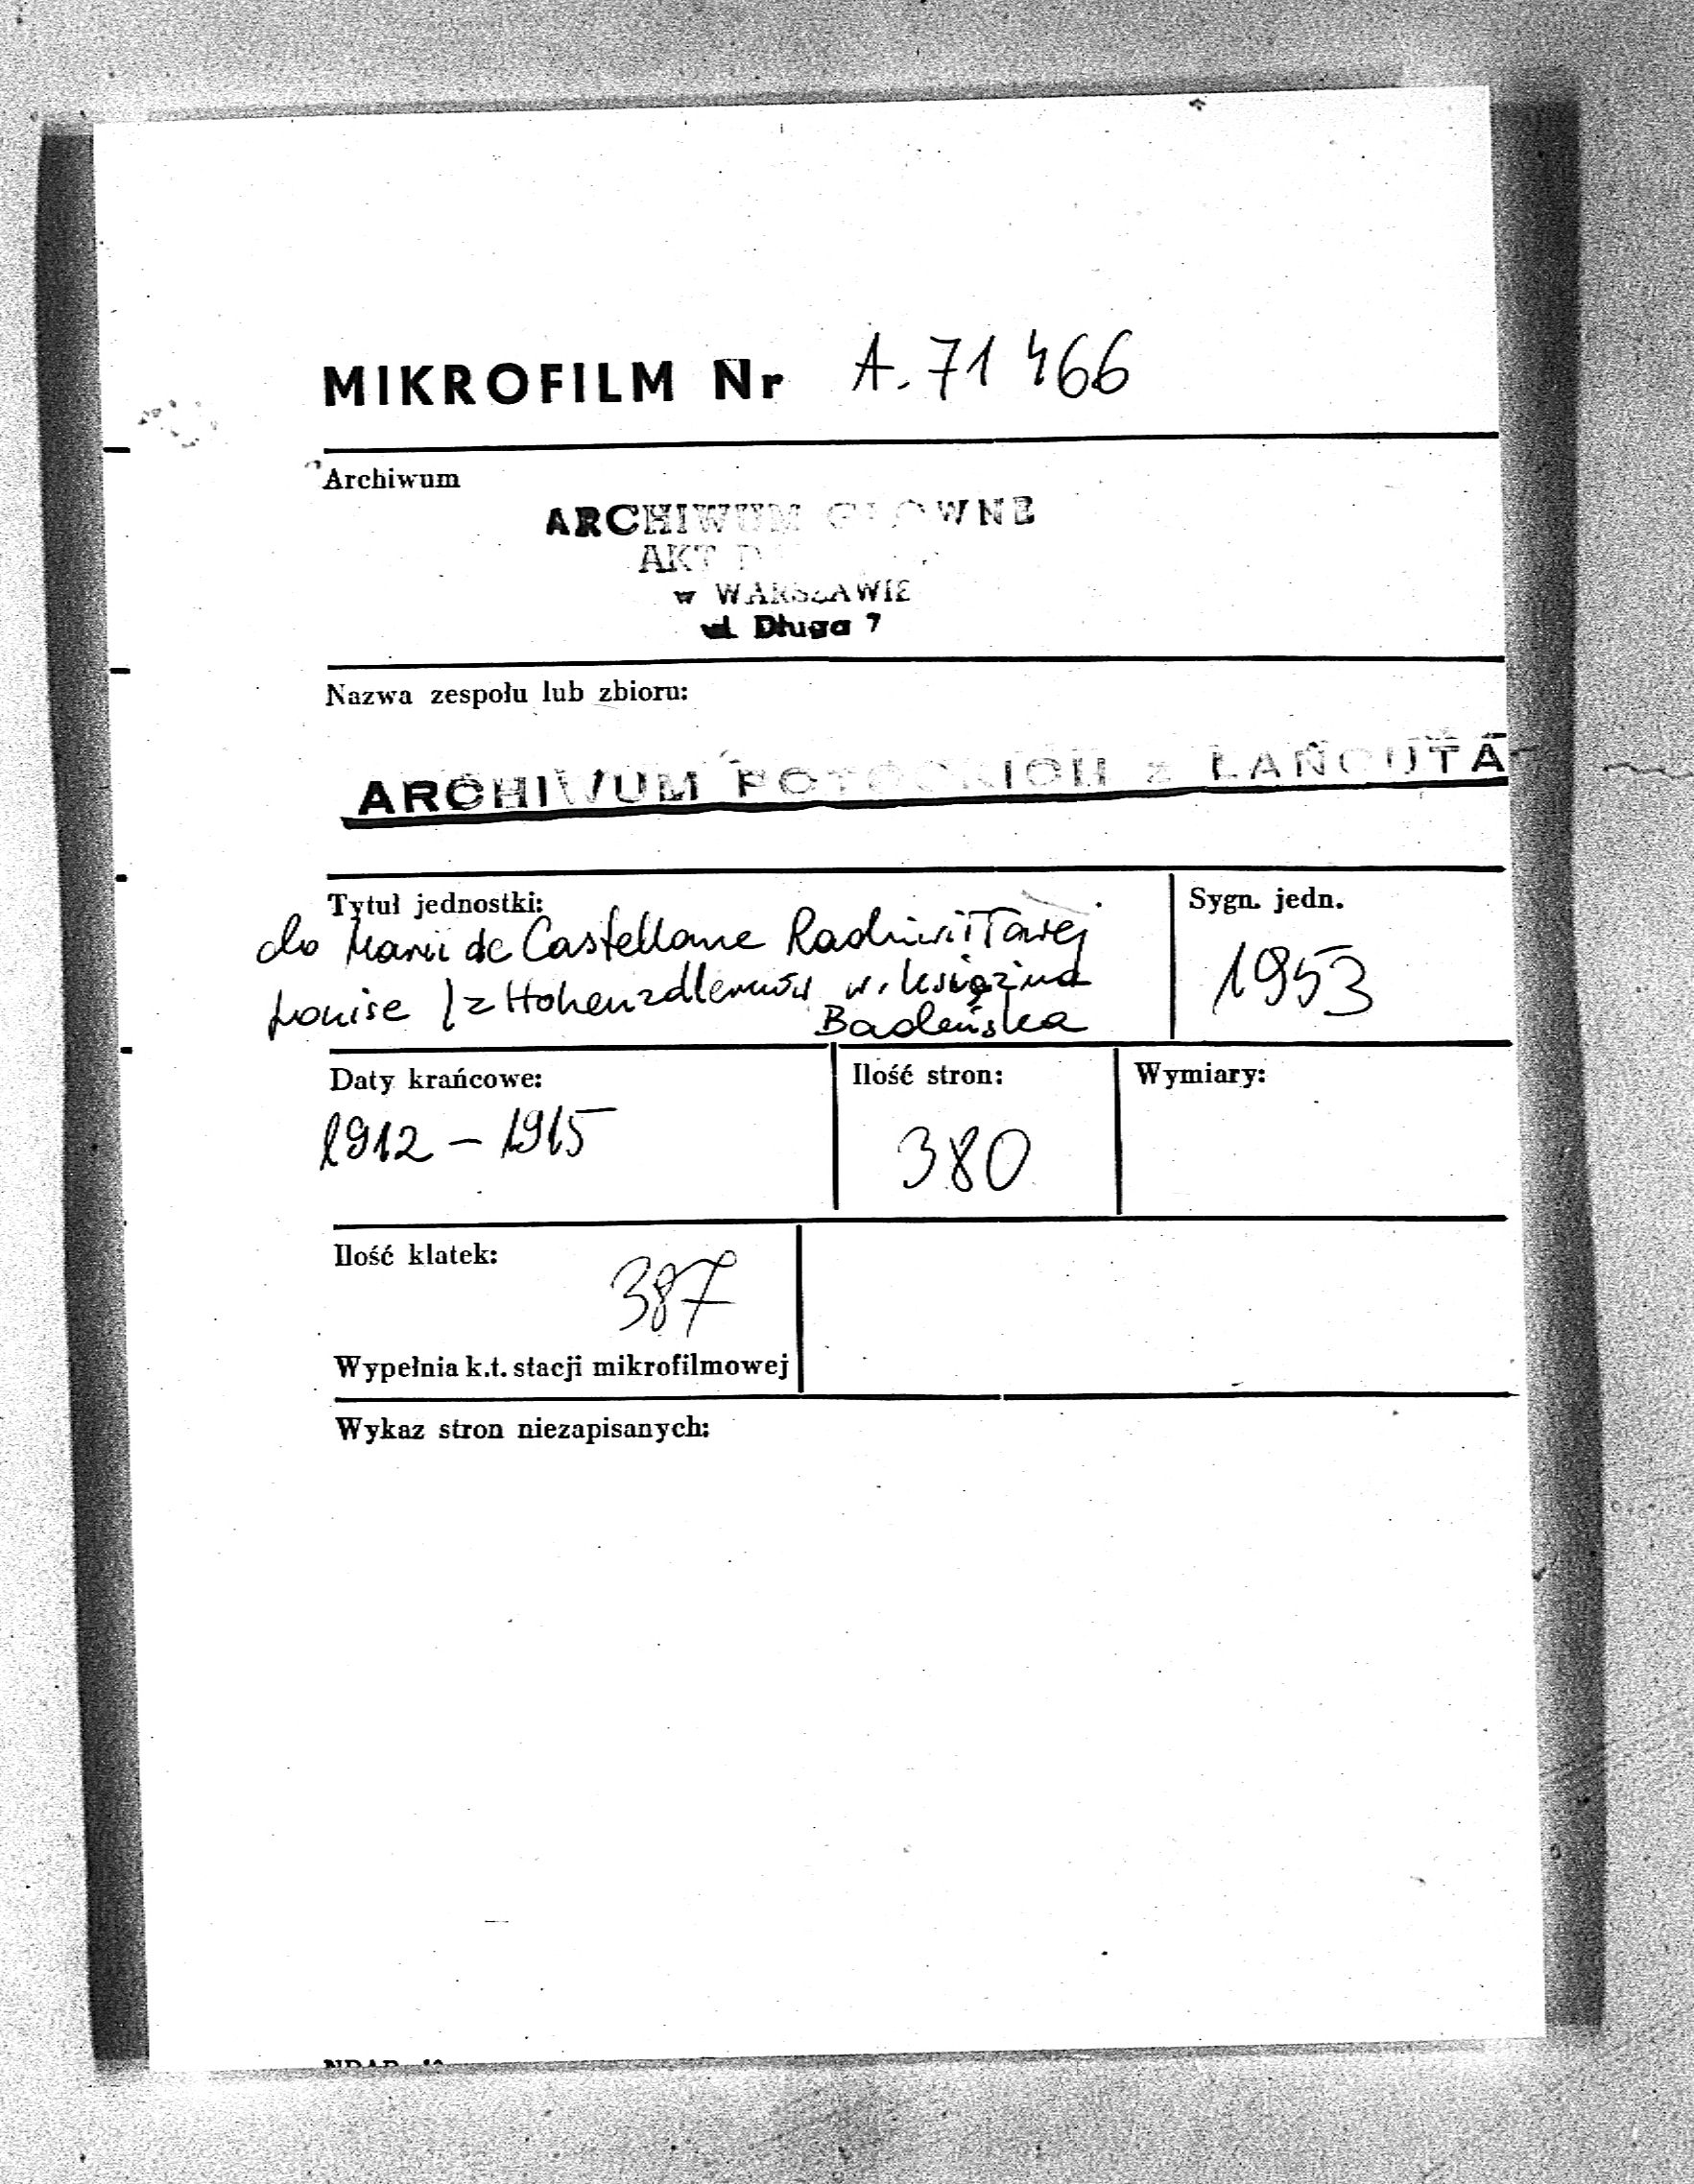 MIKROFILM Nr A. 71 466
Archiwum
ARCHIWUM GŁOWNE
AKT D
w WARSZAWIE
ul. Długa 7
Nazwa zespołu lub zbioru:
ARCHIWUM POTOCKICH z ŁAŃCUTA
Tytuł jednostki:
do Marii de Castellane Radziwiłłowej
Louise /z Hohenzollernów w. księżna
Badeńska
Sygn. jedn.
1953
Daty krańcowe:
1912 – 1915
Ilość stron:
380
Wymiary:
Ilość klatek:
387
Wypełnia k.t. stacji mikrofilmowej
Wykaz stron niezapisanych: